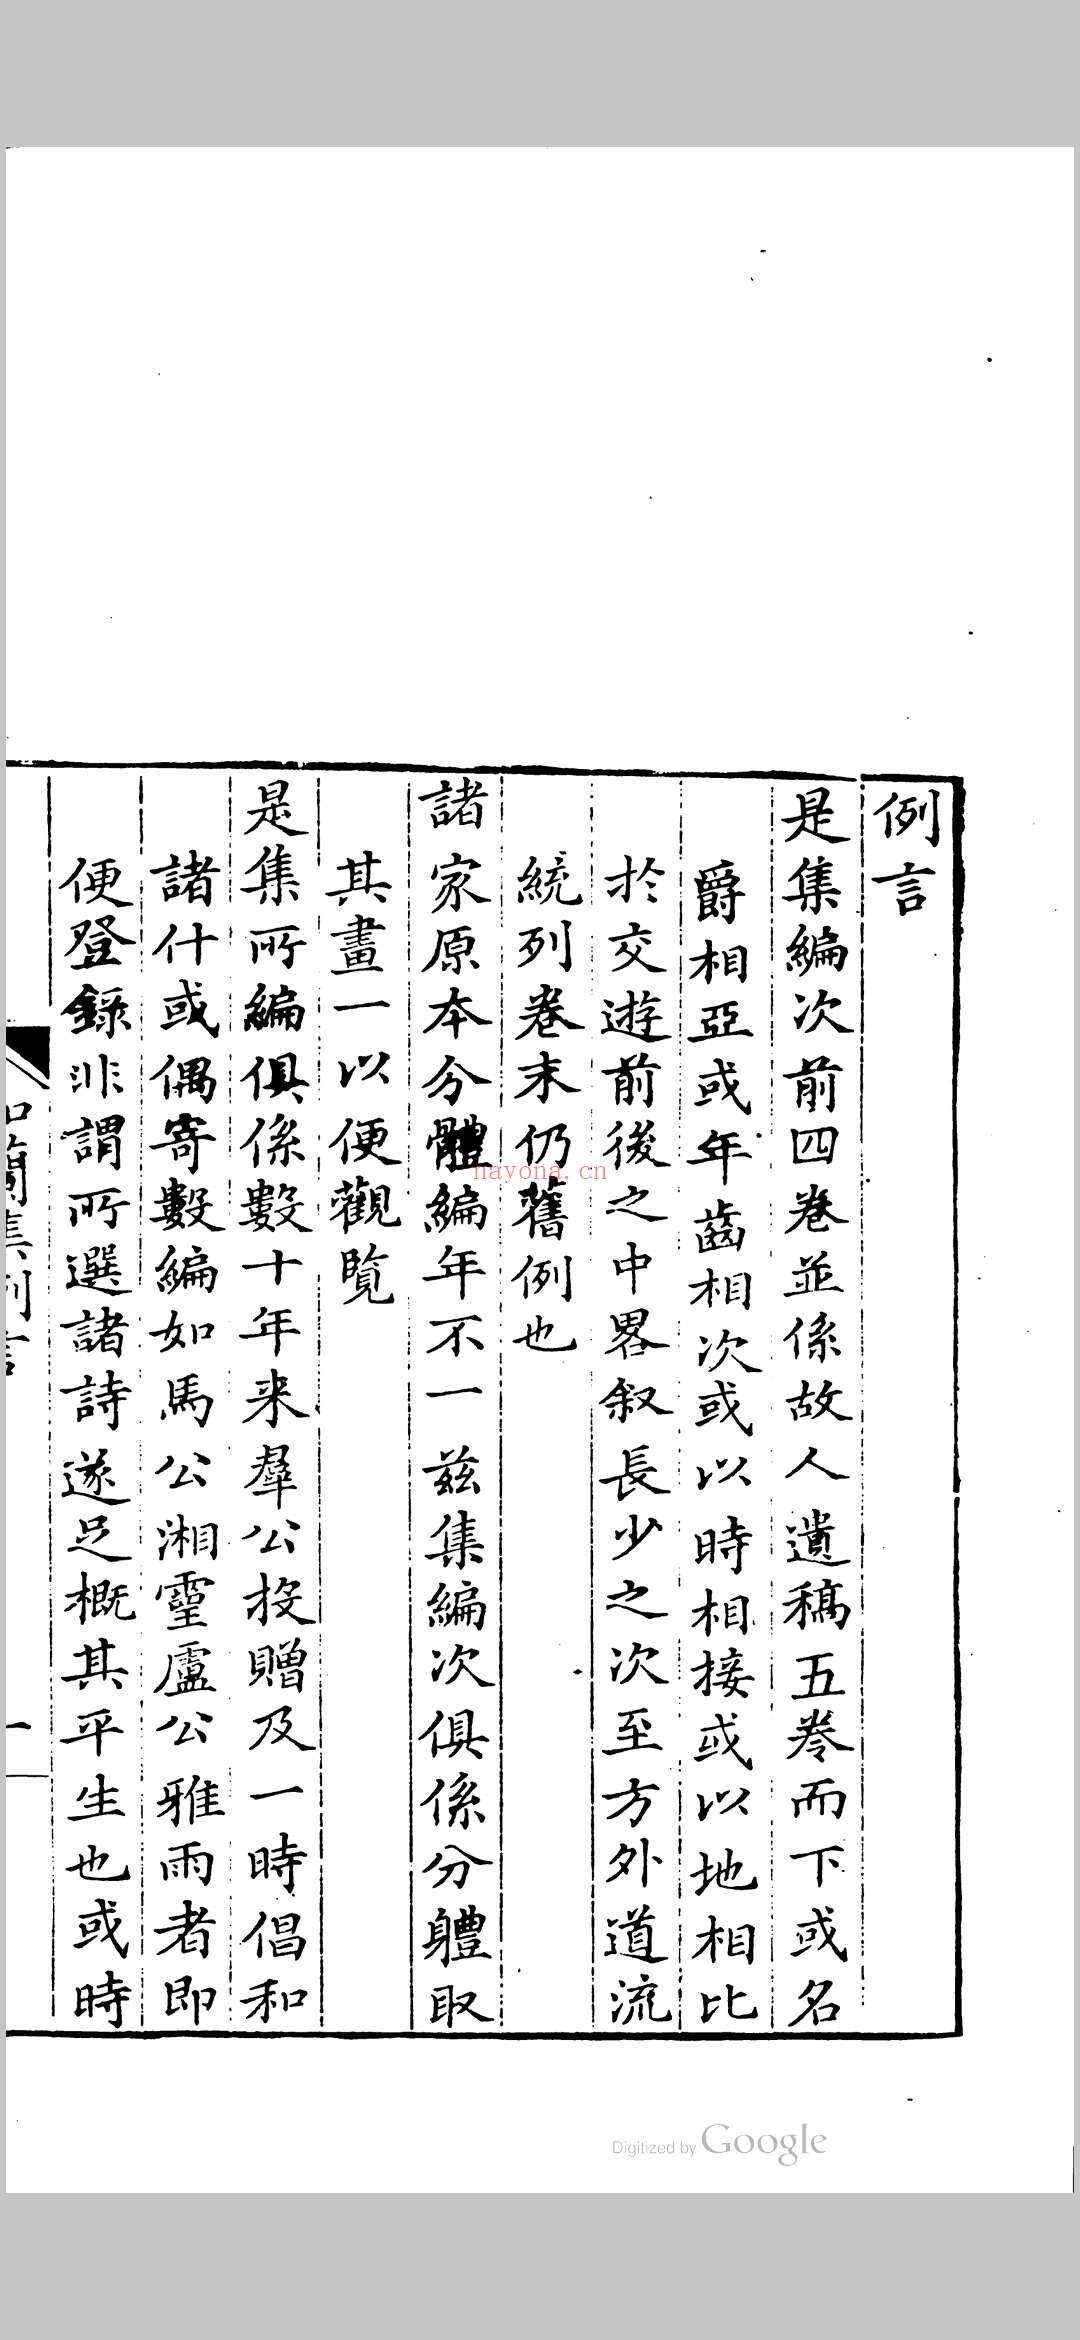 例言
是集編次前四卷並係故人遺稿五卷而下或名
爵相亞或年齒相次或以時相接或以地相比
於交遊前後之中畧叙長少之次至方外道流
統列卷末仍舊例也
諸家原本分體編年不一兹集編次俱係分體取
其畫一以便觀覽
是集所編俱係數十年来羣公投贈及一時倡和
諸什或偶寄數編如馬公湘靈盧公雅雨者即
便登錄非謂所選諸詩遂足概其平生也或時
蘭集例言
一
hayona.cn
Digitized by Google